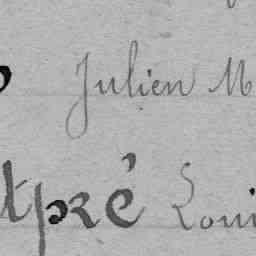 Julien M
tpré Loui